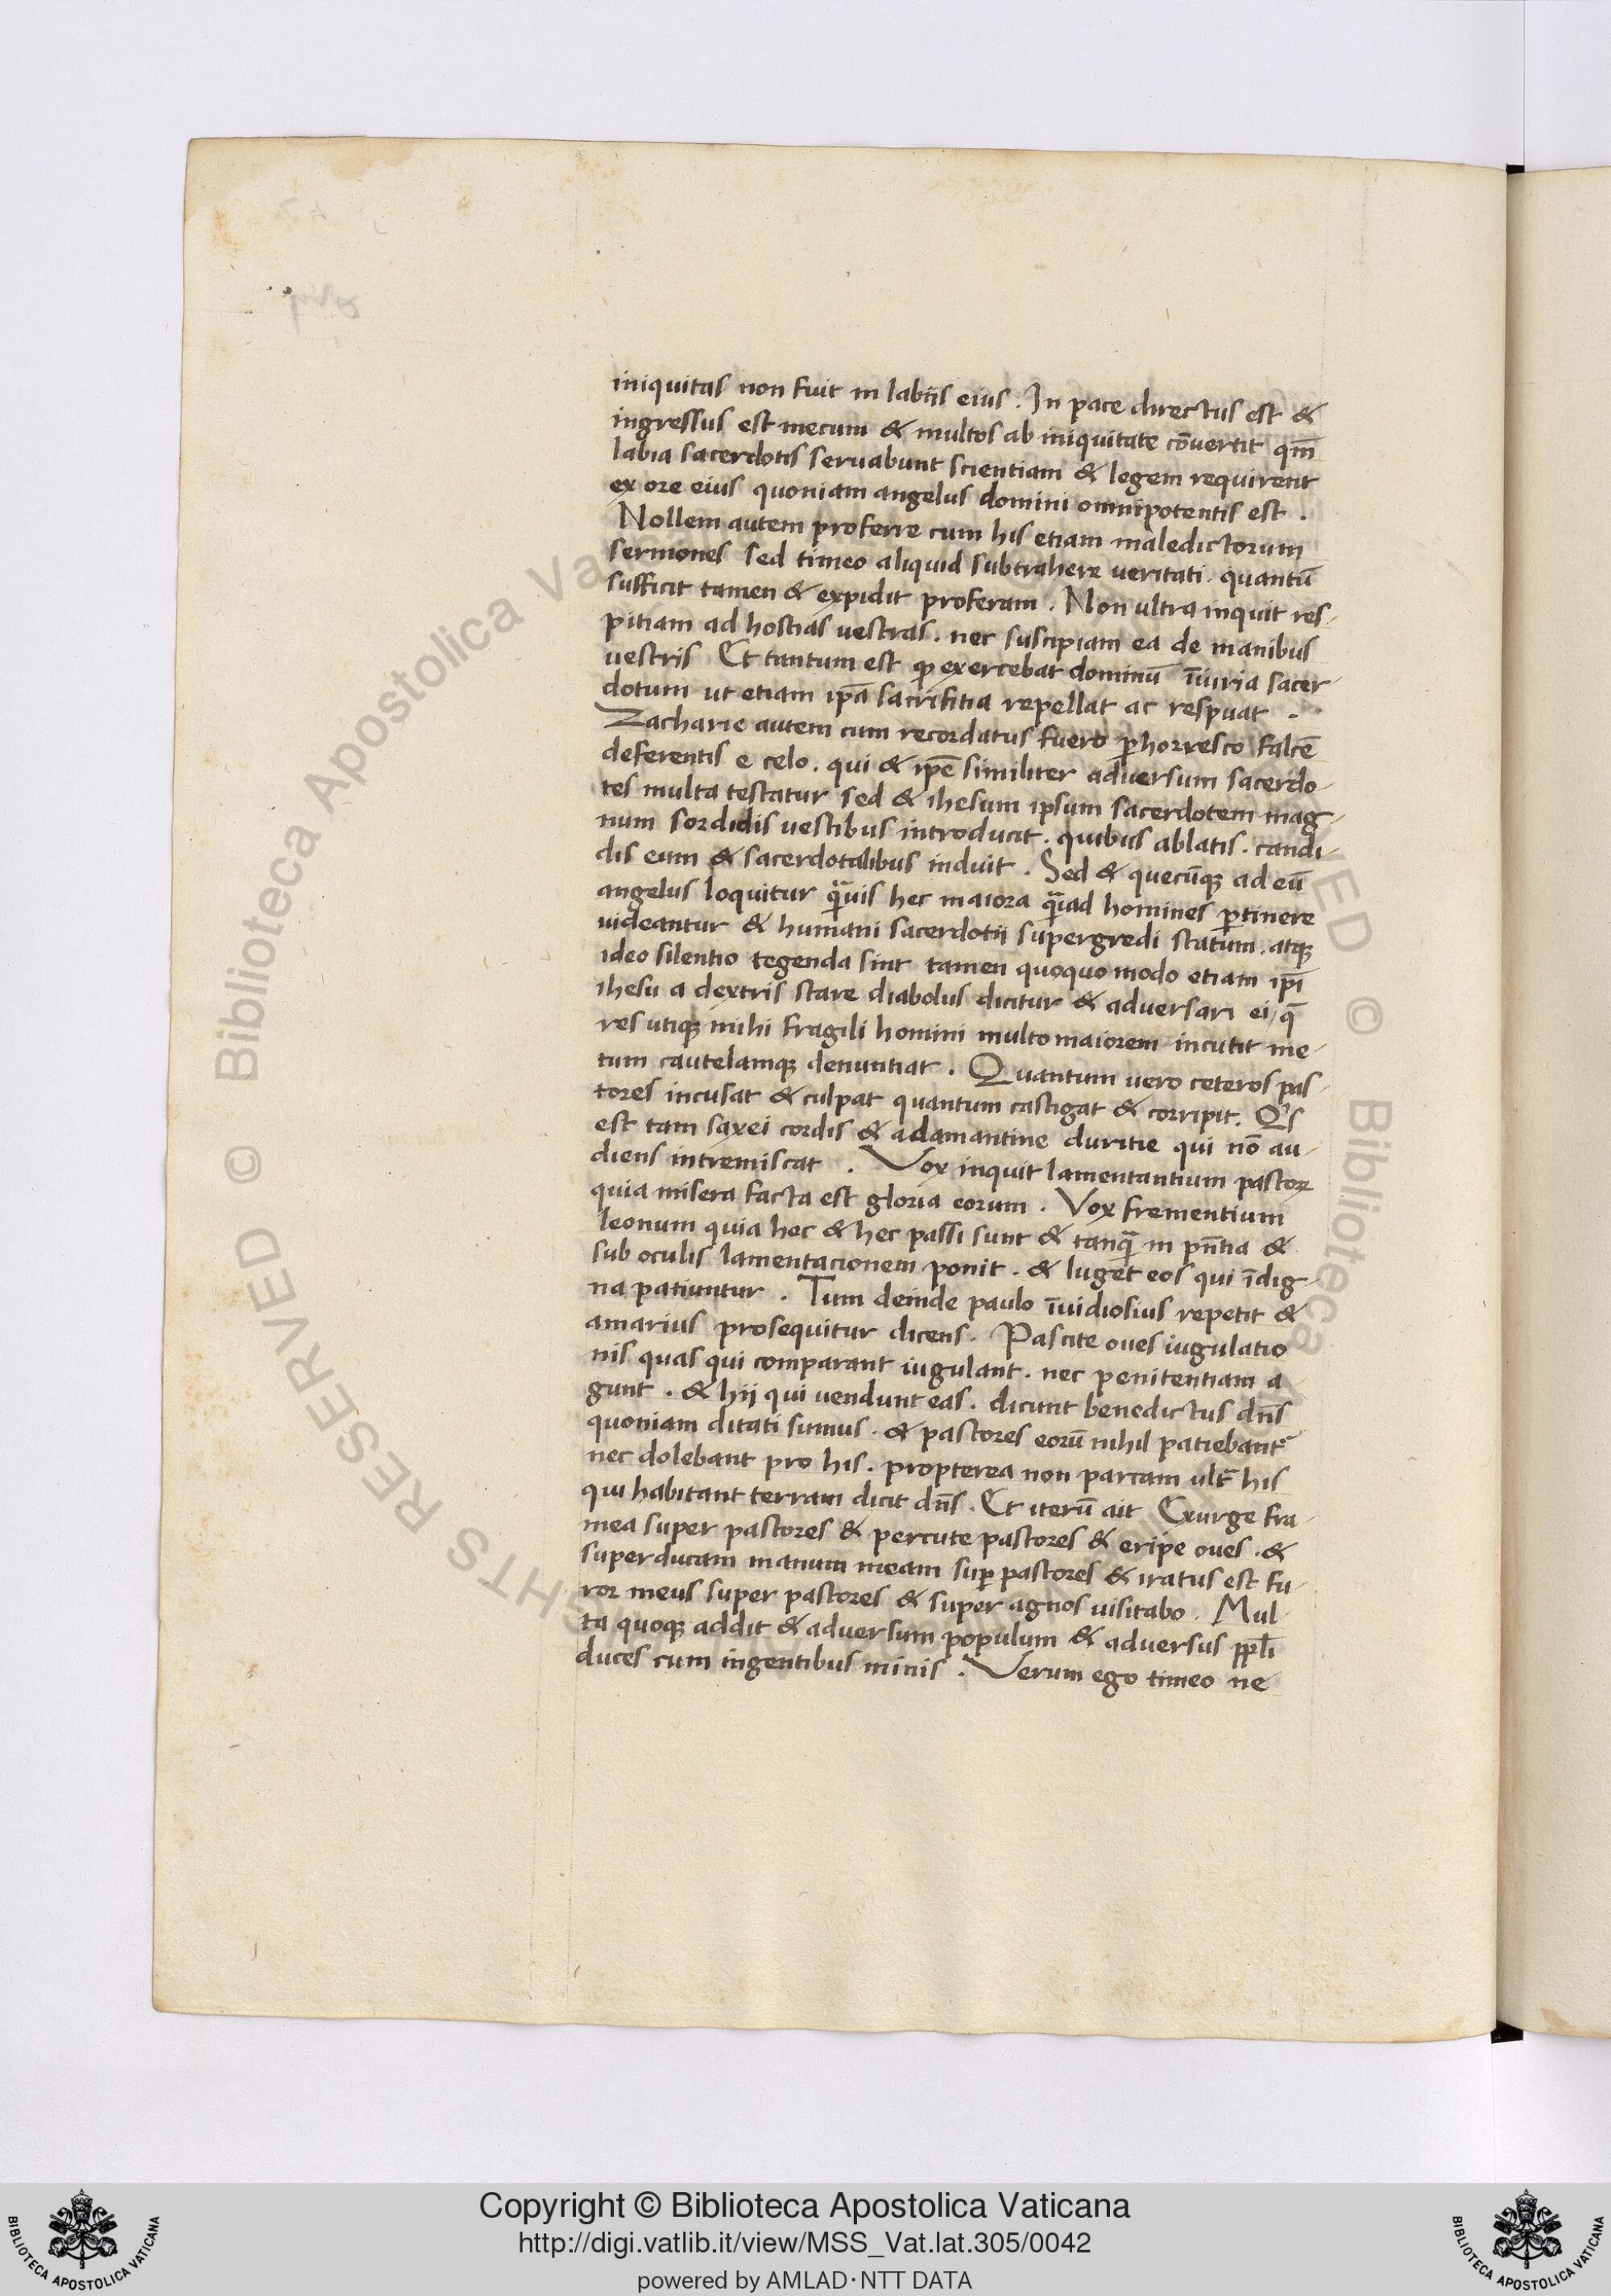 iniquitas non fuit in labiis eius . In pace directus est &
ingressus est mecum & multos ab iniquitate cōvertit qm̄
labia sacerdotis servabunt scientiam & legem requirent
ex ore eius quoniam angelus domini omnipotentis est .
Nollem autem proferre cum his etiam maledictorum
sermones sed timeo aliquid subtrahere veritati . quantū
sufficit tamen & expidit proferam . Non ultra inquit res-
pitiam ad hostias vestras . nec suscipiam ea de manibus
vestris Et tantum est ꝙ exercebat dominū īiuria sacer-
dotum ut etiam ip̄a sacrifitia repellat ac respuat .
Zacharie autem cum recordatus fuero ꝑhorresco falcē
deferentis e celo . qui & ip̄e similiter adversum sacerdo-
tes multa testatur sed & ihesum ipsum sacerdotem mag-
num sordidis vestibus introducit . quibus ablatis . candi-
dis eum & sacerdotalibus induit . Sed & quecūqꝫ ad eū
angelus loquitur q̄vis hec maiora q̄ ad homines ꝑtinere
videantur & humani sacerdotii supergredi statum . atqꝫ
ideo silentio tegenda sint tamen quoquo modo etiam ip̄i
ihesu a dextris stare diabolus dicitur & adversari ei / q̄
res utiqꝫ mihi fragili homini multo maiorem incutit me-
tum cautelamqꝫ denuntiat . Quantum vero ceteros pas-
tores incusat & culpat quantum castigat & corripit . Qis
est tam saxei cordis & adamantine duritie qui nō au-
diens intremiscat . Vox inquit lamentantium pastoꝝ
quia misera facta est gloria eorum . Vox frementium
leonum quia hec & hec passi sunt & tanq̄ in pn̄tia &
sub oculis lamentacionem ponit . & luget eos qui īdig-
na patiuntur . Tum deinde paulo īvidiosius repetit &
amarius prosequitur dicens . Pascite oves iugulatio
nis quas qui comparant iugulant . nec penitentiam a-
gunt . & hij qui vendunt eas . dicunt benedictus dn̄s
quoniam ditati sumus . & pastores eorū nihil patiebant᷑
nec dolebant pro his . propterea non parcam ult᷑ his
qui habitant terram dicit dn̄s . Et iterū ait Exurge fra-
mea super pastores & percute pastores & eripe oves . &
superducam manum meam suꝑ pastores & iratus est fu-
ror meus super pastores & super agnos visitabo . Mul-
ta quoqꝫ addit & adversum populum & adversus pp̄li
duces cum ingentibus minis . Verum ego timeo ne
© Biblioteca Apostolica Vaticana
RIGHTS RESERVED
Copyright © Biblioteca Apostolica Vaticana
http://digi.vatlib.it/view/MSS_Vat.lat.305/0042
powered by AMLAD·NTT DATA
BIBLIOTECA APOSTOLICA VATICANA
BIBLIOTECA APOSTOLICA VATICANA